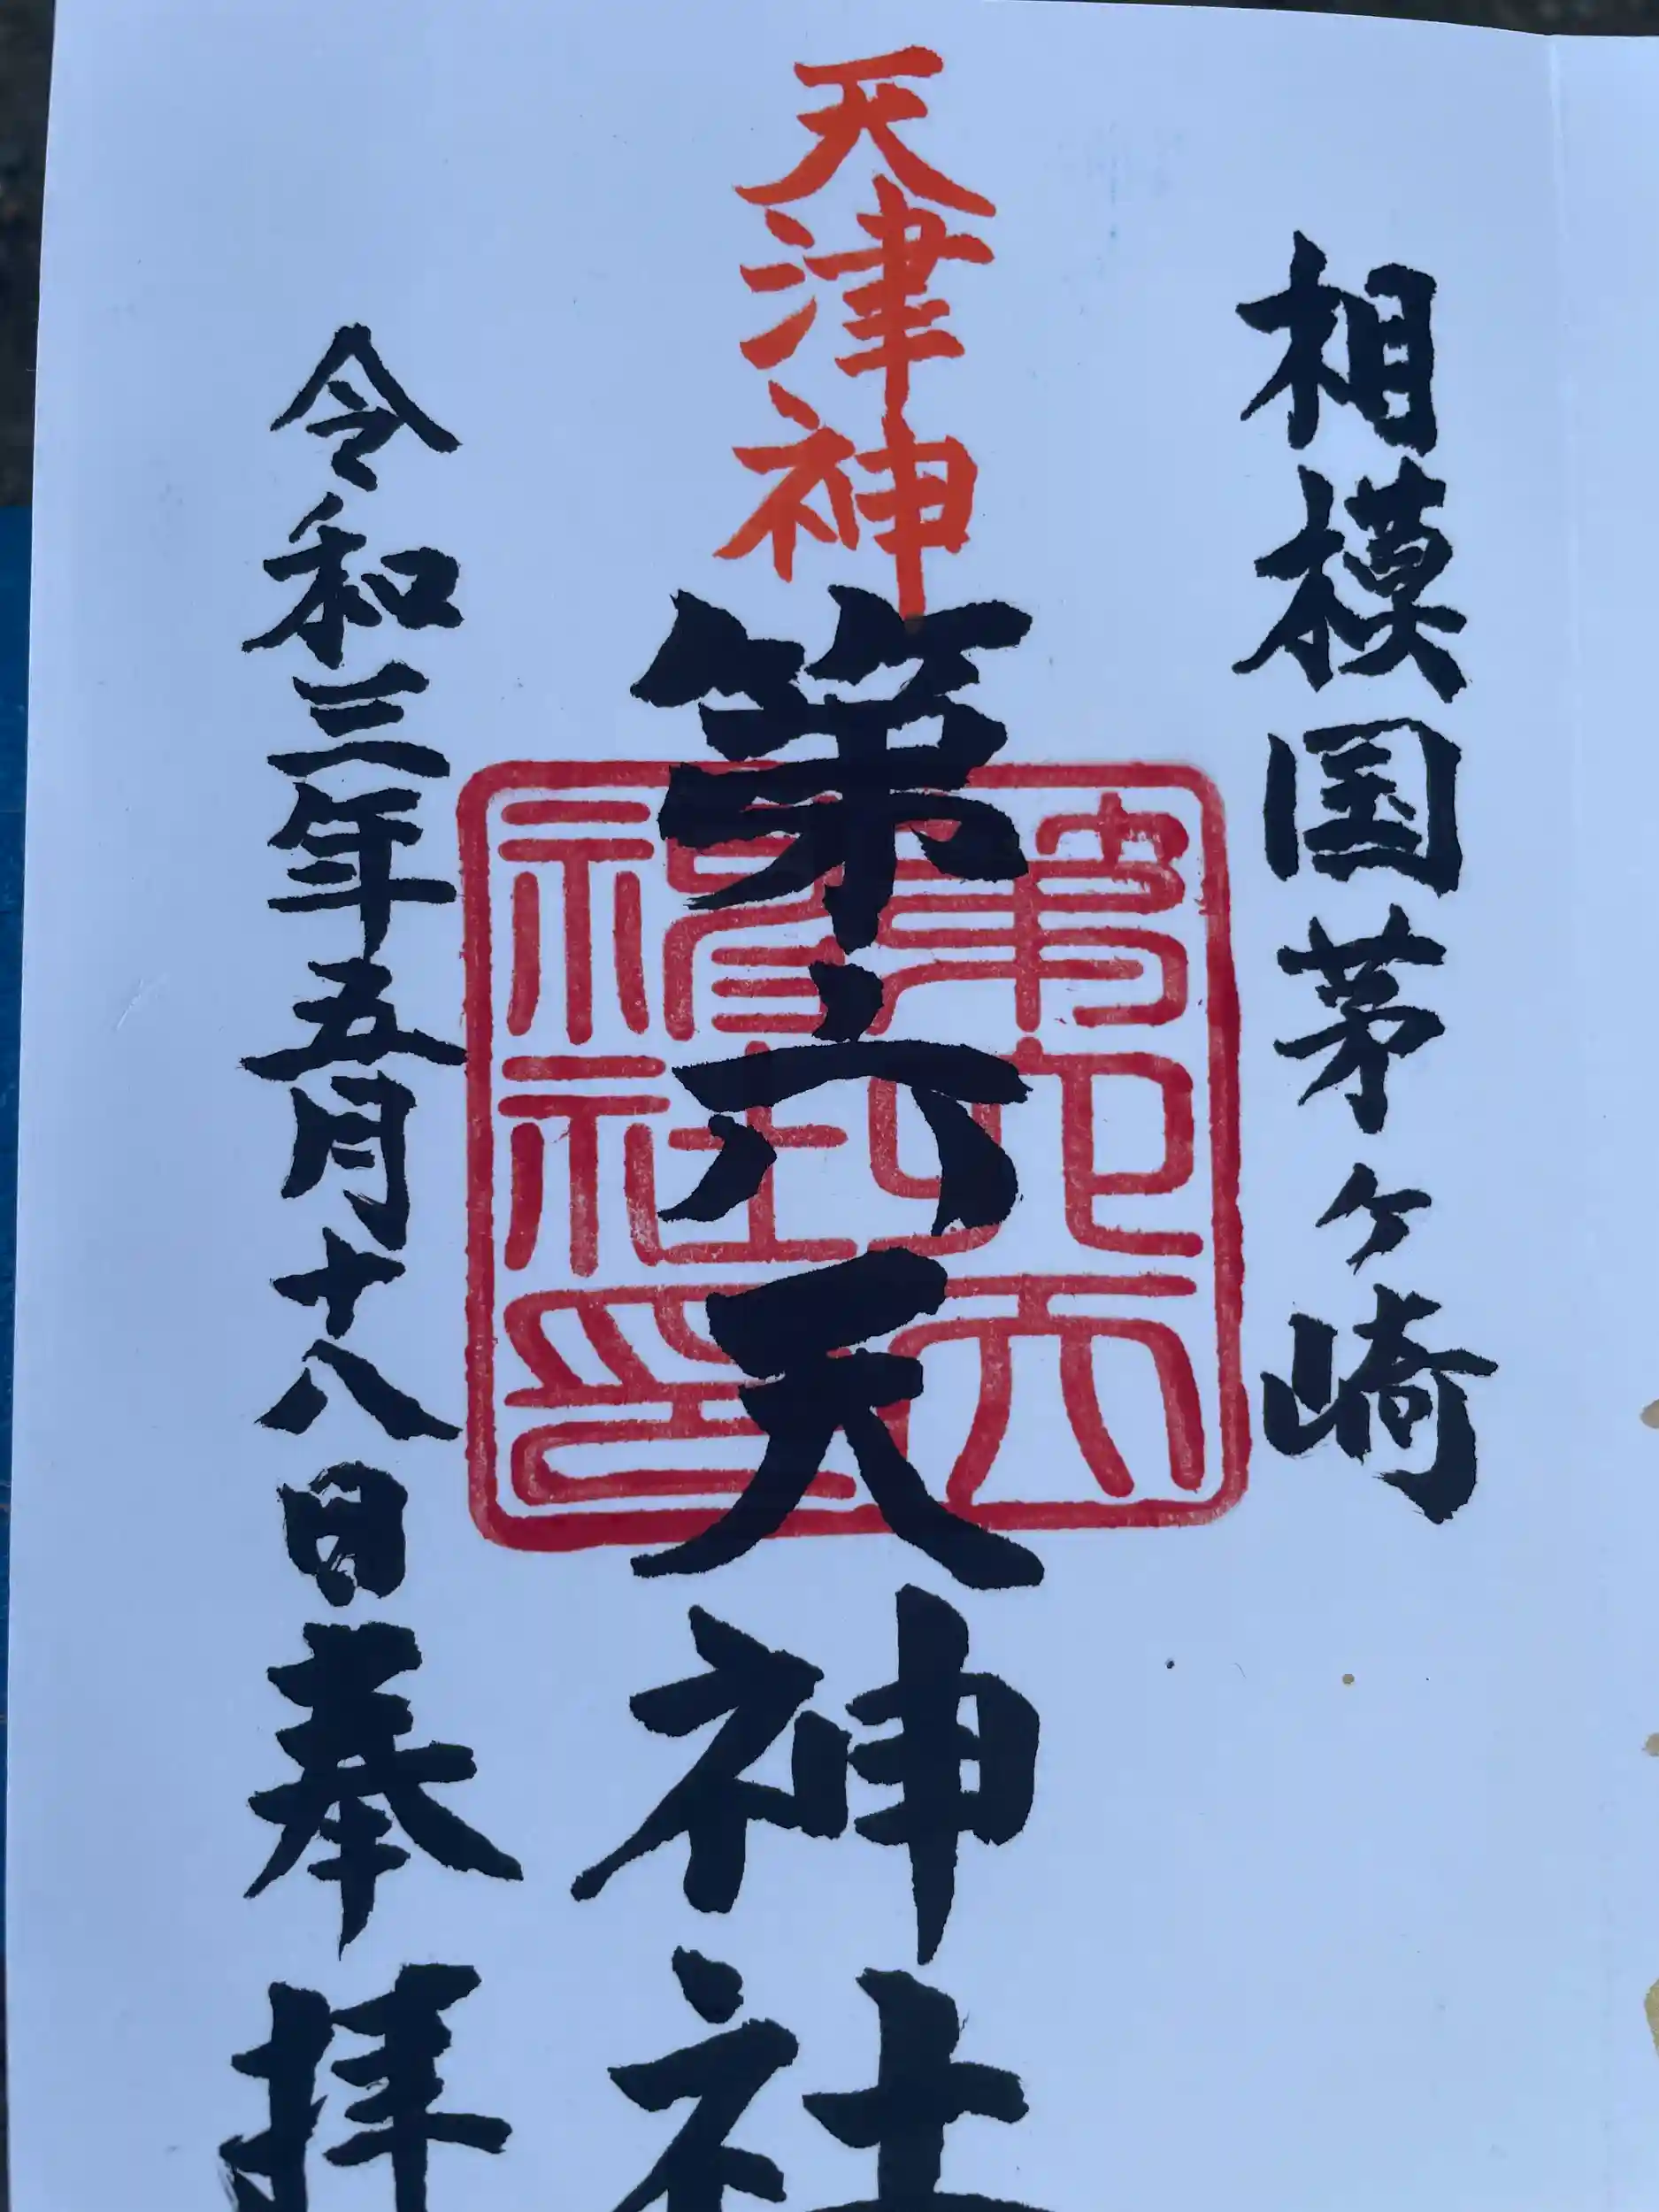 相模国茅ヶ崎
天津神
第六天神社
令和三年五月十八日奉拝
第六天
神社印